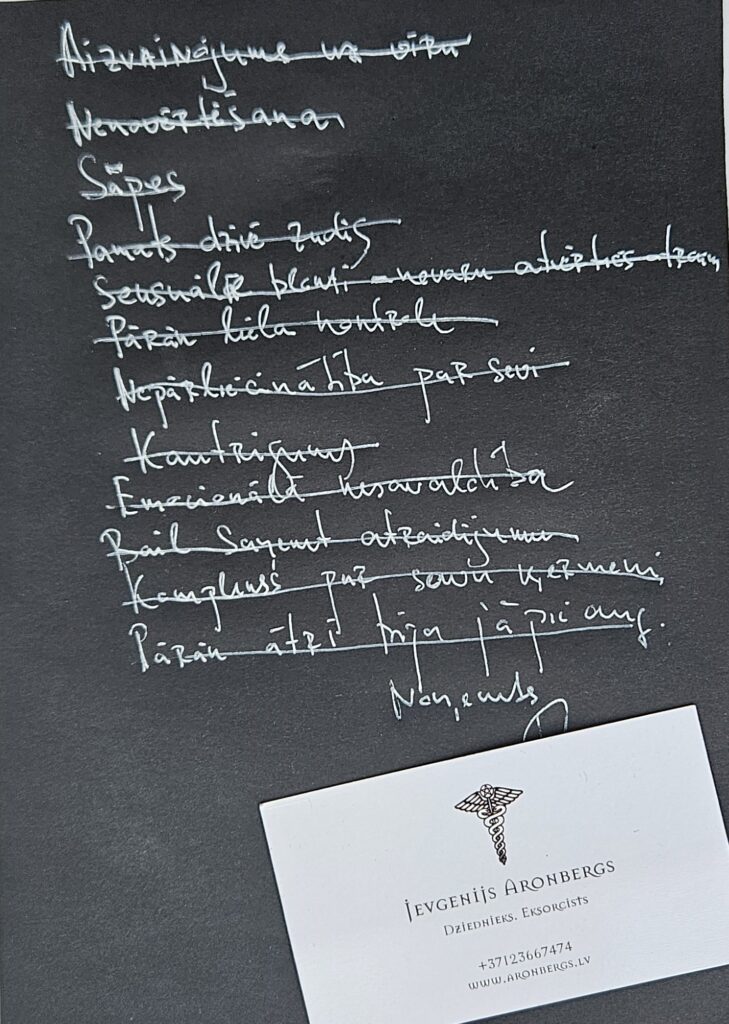 Aizvainojums uz vīru
Nenovērtēšana
Sāpes
Pamats dzīvē zudis
Sensuālie bloki - nevaru atvērties
Pārāk liela kontrole
Nepārliecinātība par sevi
Kautrīgums
Emocionālā nesavaldība
Bail saņemt atraidījumu
Kompleksi par savu ķermeni
Pārāk ātri bija jāpieaug.
Noņemts
JEVGENIJS ARONBERGS
DZIEDNIEKS. EKSORCISTS
+37123667474
WWW.ARONBERGS.LV